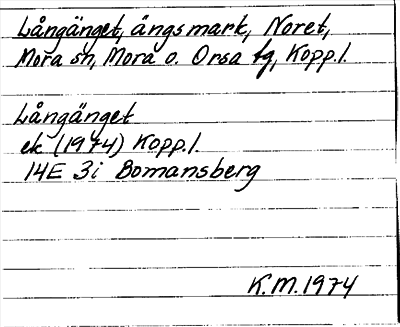 Långänget, ängsmark, Noret,
Mora sn, Mora o. Orsa tg, Kopp.l.
Långänget
ek (1974) Kopp.l.
14E 3i Bomansberg
K.M.1974